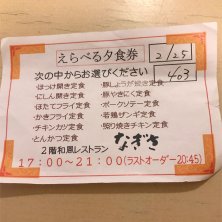 えらべる夕食券
2/25
次の中からお選びください
403
・ほっけ開き定食 ・豚しょうが焼き定食
・にしん開き定食 ・豚やきにく定食
・ほたてフライ定食 ・ポークソテー定食
・かきフライ定食 ・若鶏ザンギ定食
・チキンカツ定食 ・照り焼きチキン定食
・とんかつ定食
2階和風レストラン なぎさ
17:00~21:00(ラストオーダー20:45)